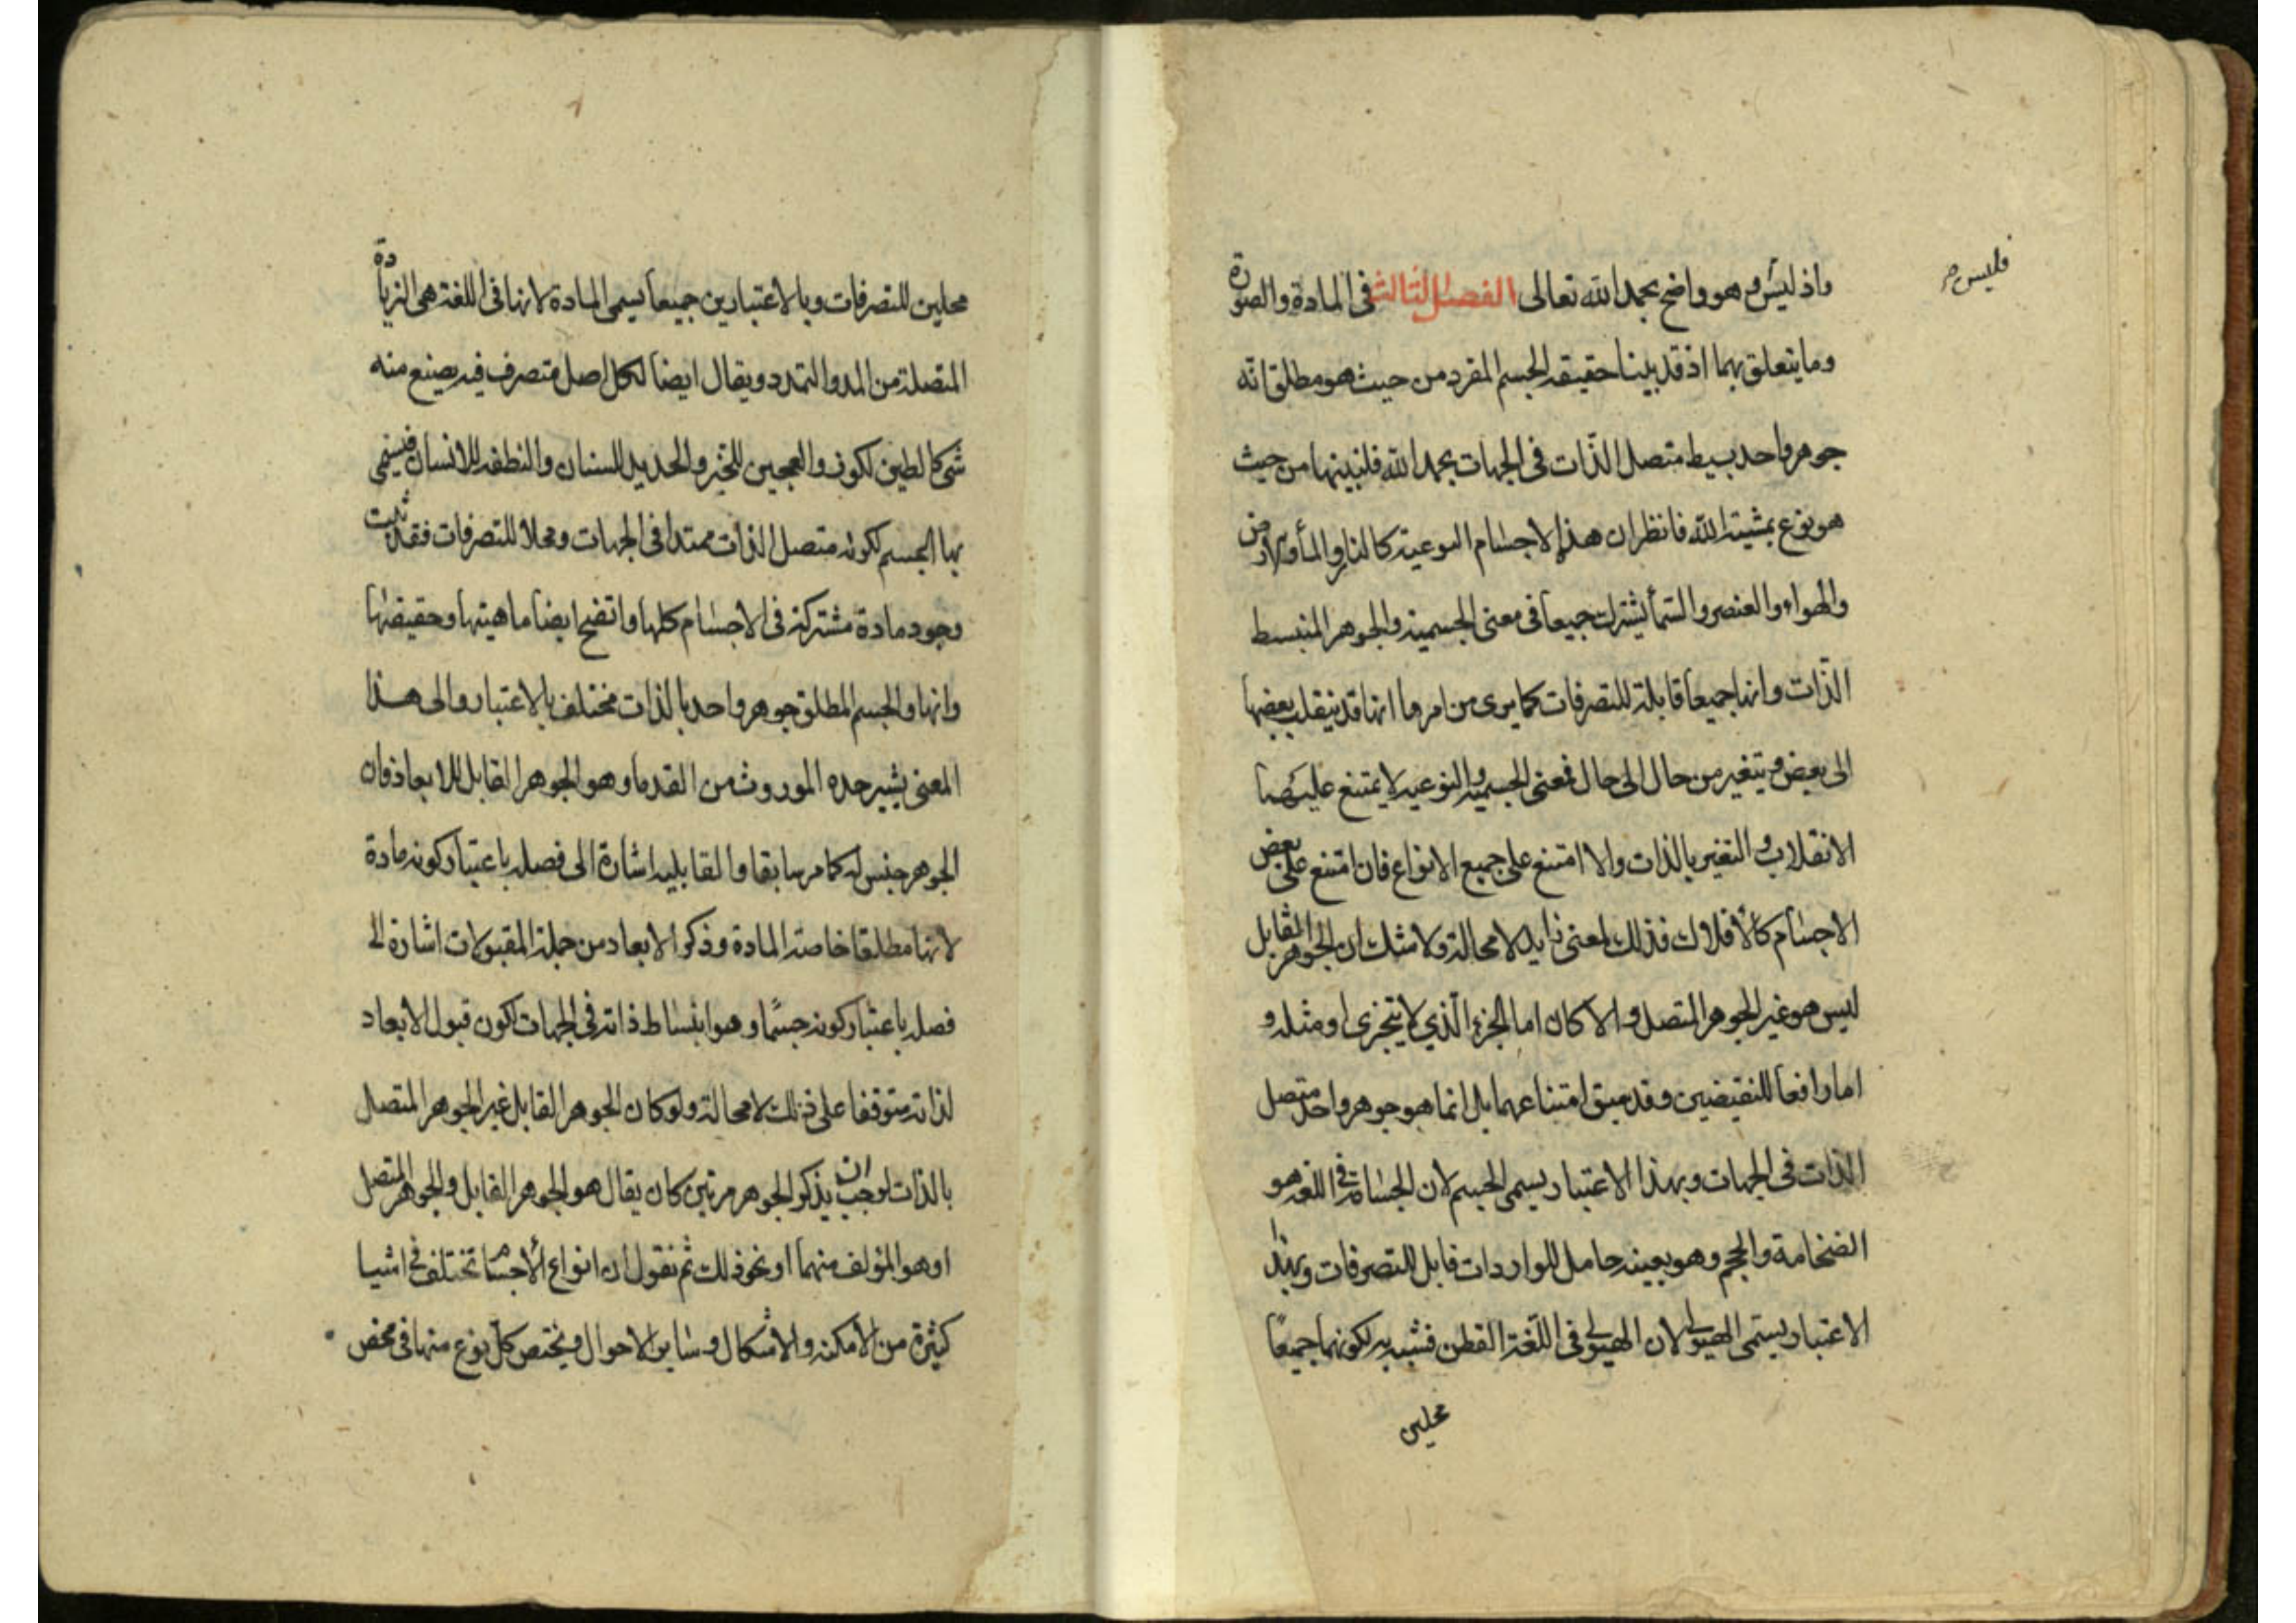 فليس صح
واذ ليس و هو واضح بحمد الله تعالى الفصل الثالث في المادة والصورة
وما يتعلق بهما اذ قد بينا حقيقة الجسم المفرد من حيث هو مطلق انه
جوهر واحد بسيط متصل الذّات في الجهات بحمد الله فلنبينها من حيث
هو نوع بمشية الله فانظر ان هذه الاجسام النوعية كالنار والمأ والارض
والهواء والعنصر والسمأ يشترك جميعا في معنى الجسمية والجوهر المنبسط
الذّات وانها جميعا قابلة للتصرفات كما يرى من امرها انها قد ينقلب بعضها
الى بعض ويتغير من حال الى حال فمعنى الجسمية والنوعية لا يمتنع عليهما
الانقلاب و التغير بالذات والا امتنع على جميع الانواع فان امتنع على بعض
الاجسام كالأفلاك فذلك لمعنى زايد لا محالة ولا شك ان الجوهر القابل
ليس هو غير الجوهر المتصل والا كان اما الجزء الّذي لا يتجزى او مثله و
اما رافعا للنقيضين وقد سبق امتناعهما بل انما هو جوهر واحد متصل
الذات في الجهات وبهذا الاعتبار يسمى الجسم لان الجسامة في اللغة هو
الضخامة والحجم وهو بعينه حامل للواردات قابل للتصرفات وبهذا
الاعتبار يسمى الهيولى لان الهيولى في اللّغة القطن فشبه به لكونهما جميعًا
محلين
محلين للتصرفات وبالاعتبارين جميعا يسمى المادة لانها في اللغة هي الزيادة
المتصلة من المد والتمدد ويقال ايضا لكل اصل متصرف فيه يصنع منه
شئ كالطين لكوز والعجين للخبز والحديد للسنان والنطفة للانسان فيسمى
بها الجسم لكونه متصل الذات ممتدا في الجهات ومحلا للتصرفات فقد ثبت
وجود مادة مشتركة في الاجسام كلها واتضح ايضا ماهيتها وحقيقتها
وانها والجسم المطلق جوهر واحد بالذات مختلف بالاعتبار والى هذا
المعنى يشير حده الموروث من القدماء وهو الجوهر القابل للابعاد فان
الجوهر جنس له كما مر سابقا والقابلية اشارة الى فصله باعتبار كونه مادة
لانها مطلقا خاصة المادة وذكر الابعاد من جملة المقبولات اشارة الى
فصله باعتبار كونه جسمًا وهو انبساط ذاته في الجهات لكون قبول الابعاد
لذاته متوقفا على ذلك لا محالة ولو كان الجوهر القابل غير الجوهر المتصل
بالذات لوجب ان يذكر الجوهر مرتين كان يقال هو الجوهر القابل والجوهر المتصل
او هو المؤلف منهما او نحو ذلك ثم نقول ان انواع الأجسام تختلف في اشيا
كثيرة من الامكنة والاشكال وساير الاحوال ويختص كل نوع منها في محض